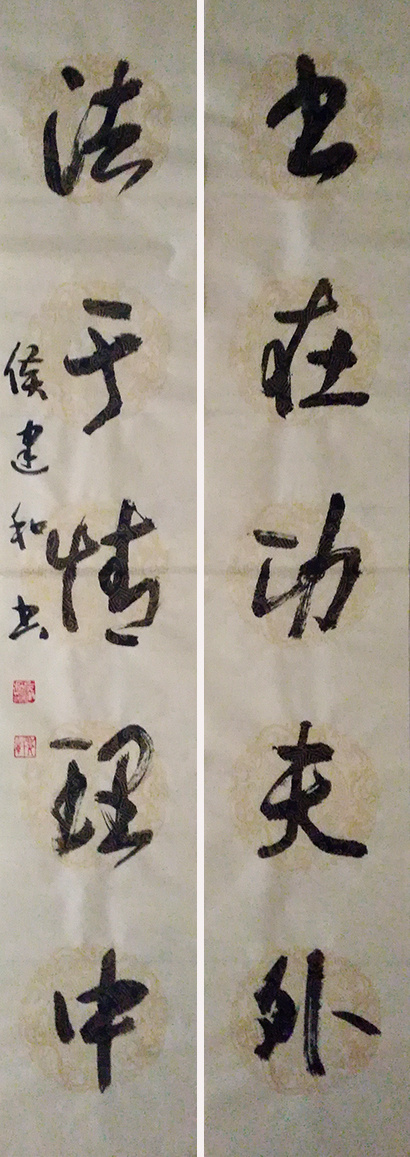 书在功夫外
法于情理中
侯建和书